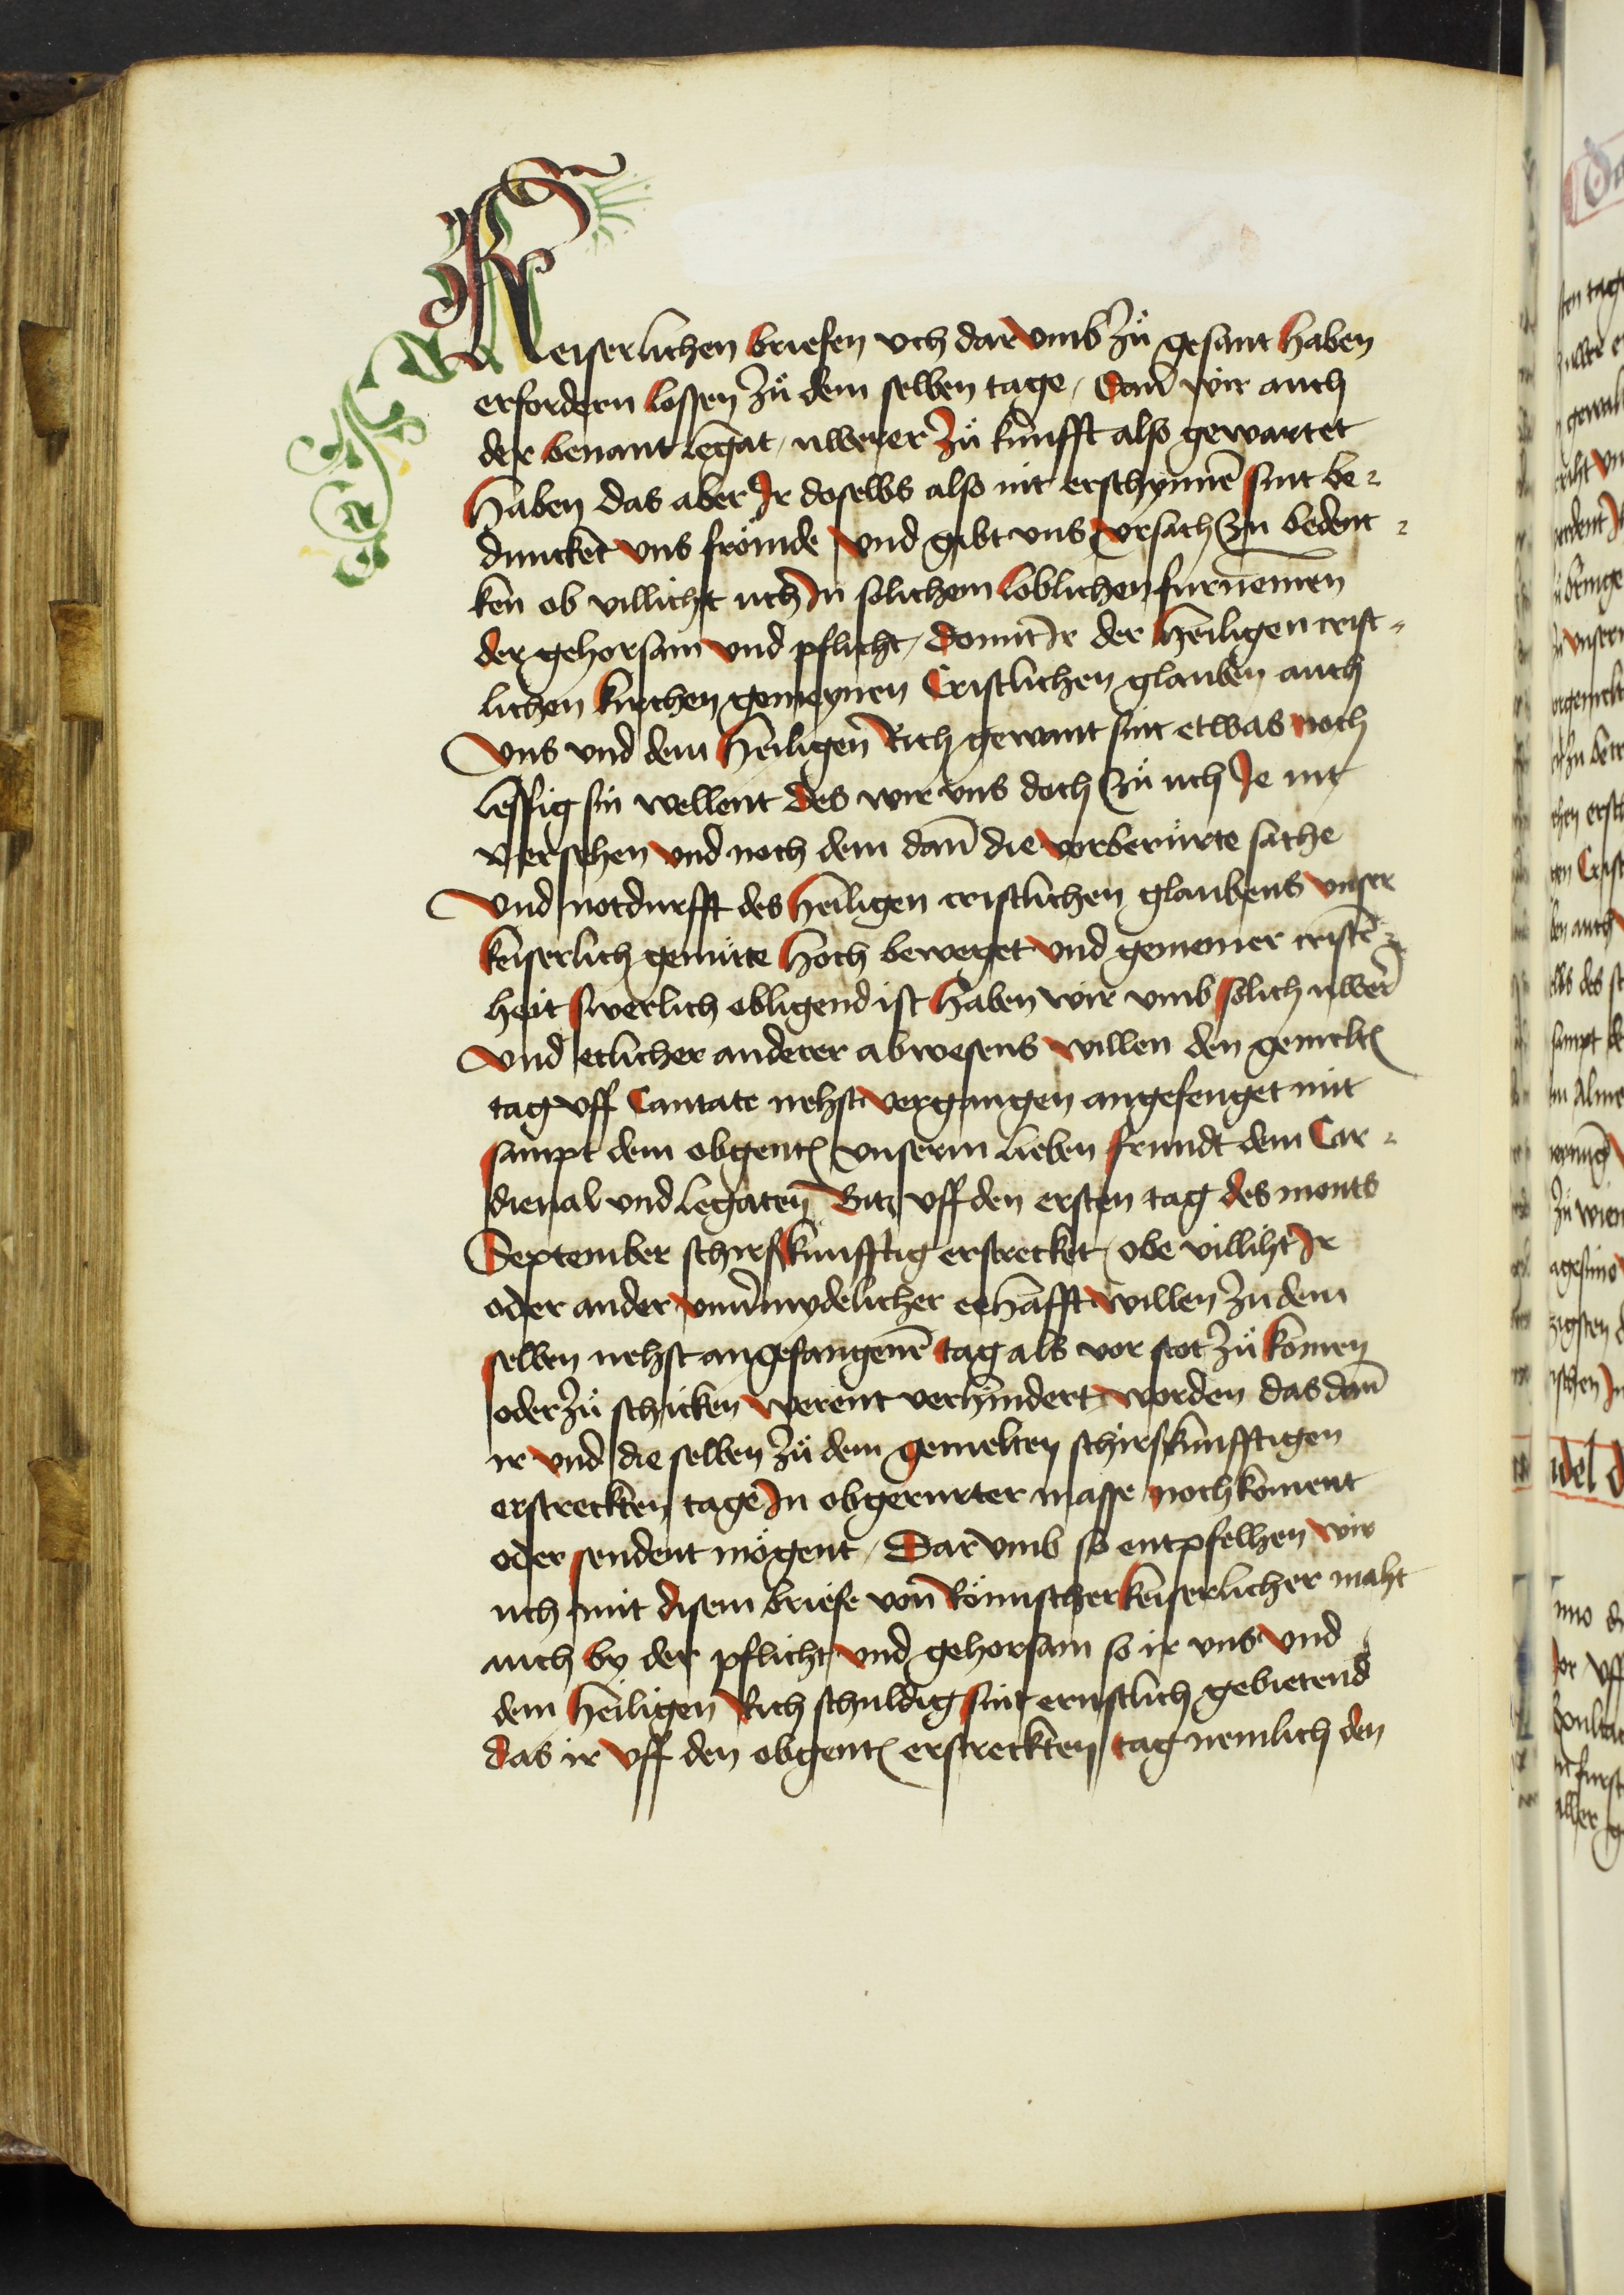 Keiserlichen briefen vch dar vmb zů gesant haben
erfordern lossen zů dem selben tage / Dañ wir auch
der benant legat / uwerer zů kunfft also gewartet
haben das aber Ir doselbs also nit erschynnē sint be-
dunckēt vns frömde vnd gibt vns vrsach zu bedenc-
ken ob villicht uch In solichem loblichen furnemen
der gehorsam vnd pflicht / Domit Ir der heiligen crist-
lichen kirchen gemeynen Cristlichen glauben auch
Vns vnd dem heiligen Rich gewant sint etwas noch
lessig sin wellent des wir vns doch zů uch Je nit
versehen vnd noch dem dañ die vorberůrte sache
Vnd notdurfft des heiligen cristlichen glaubens vnser
keiserlich gemüte hoch beweget vnd gemeiner cristē-
heit swerlich obligend ist haben wir vmb solich uwer̄
Vnd etlicher anderer abwesens willen den gemelt̄
tag vff Cantate nehst vergangen angefenget mit
sampt dem obgent̄ vnserm lieben frundt dem Car-
dienal vnd legaten Bitz vff den ersten tag des monts
September schirskunfftig erstrecket / obe villiht Ir
oder ander vnuermydelicher eehafft willen zu dem
selben nehst angefangenē tag als vor stot zů komen
oder zů schicken werent verhindert worden das dañ
ir vnd die selben zů dem gemelten schirskunfftigen
erstreckten tage In obgerurter masse noch koment
oder sendent mögent / Dar vmb so entpfelhen wir
uch mit disem briefe von Römischer keiserlicher maht
auch by der pflicht vnd gehorsam so ir vns vnd
dem heiligen Rich schuldig sint ernstlich gebietend
das ir vff den obgent̄ erstreckten tag nemlich den